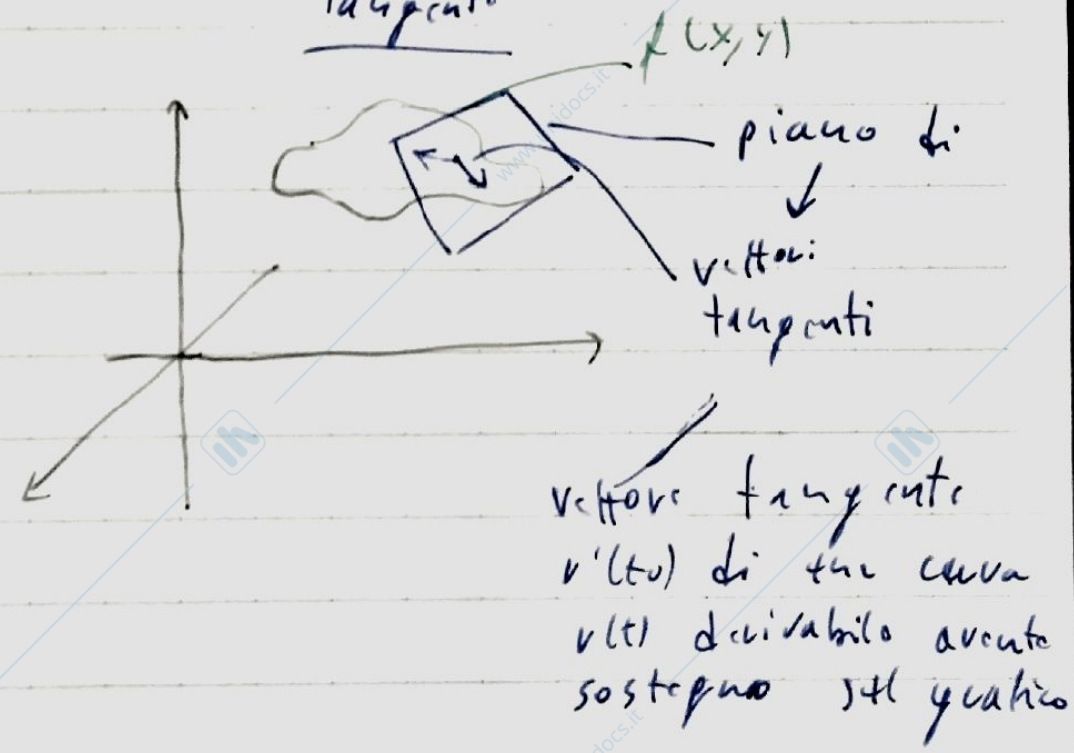 tangente
f(x,y)
piano di
vettori
tangenti
vettore tangente
r'(t0) di una curva
r(t) derivabile avente
sostegno sul grafico
www.
idocs.it
docs.it